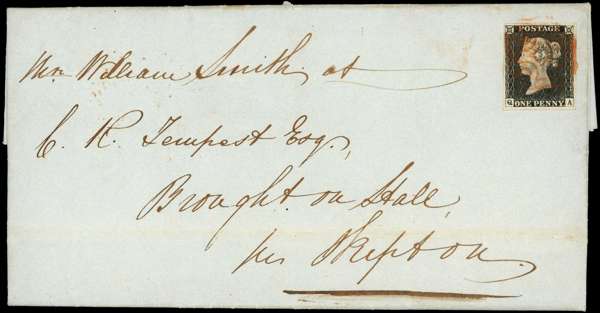 Mr. William Smith. at
C. R. Tempest Esq.,
Brought on Hall,
per Skipton,
POSTAGE
ONE PENNY
A